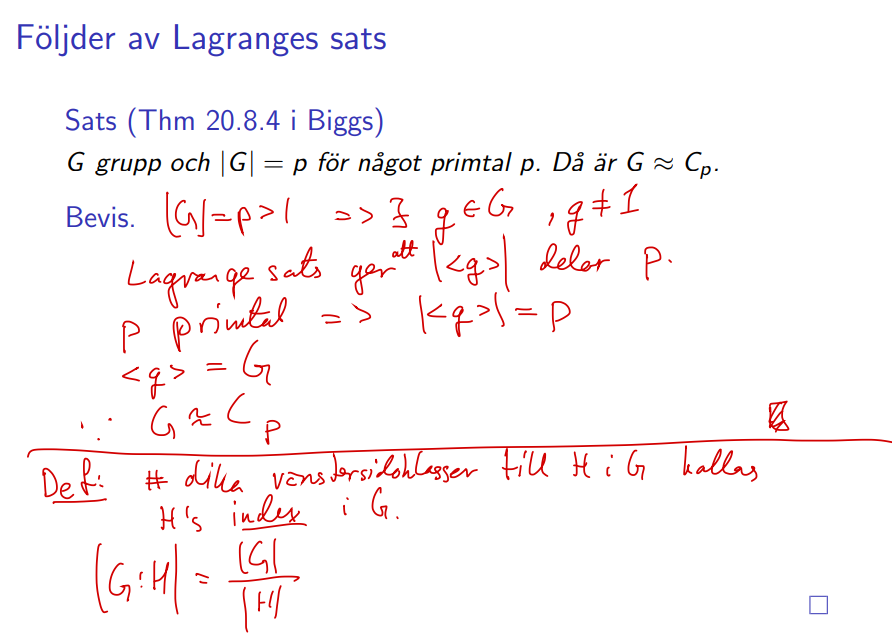 Följder av Lagranges sats
Sats (Thm 20.8.4 i Biggs)
G grupp och |G| = p för något primtal p. Då är G ≈ C_p.
Bevis. |G|=p>1 => ∃ g ∈ G , g ≠ 1
Lagrange sats ger att |<g>| delar p.
p primtal => |<g>| = p
<g> = G
∴ G ≈ C_p
Def: # olika vänstersidoklasser till H i G kallas
H's index i G.
|G:H| = |G| / |H|